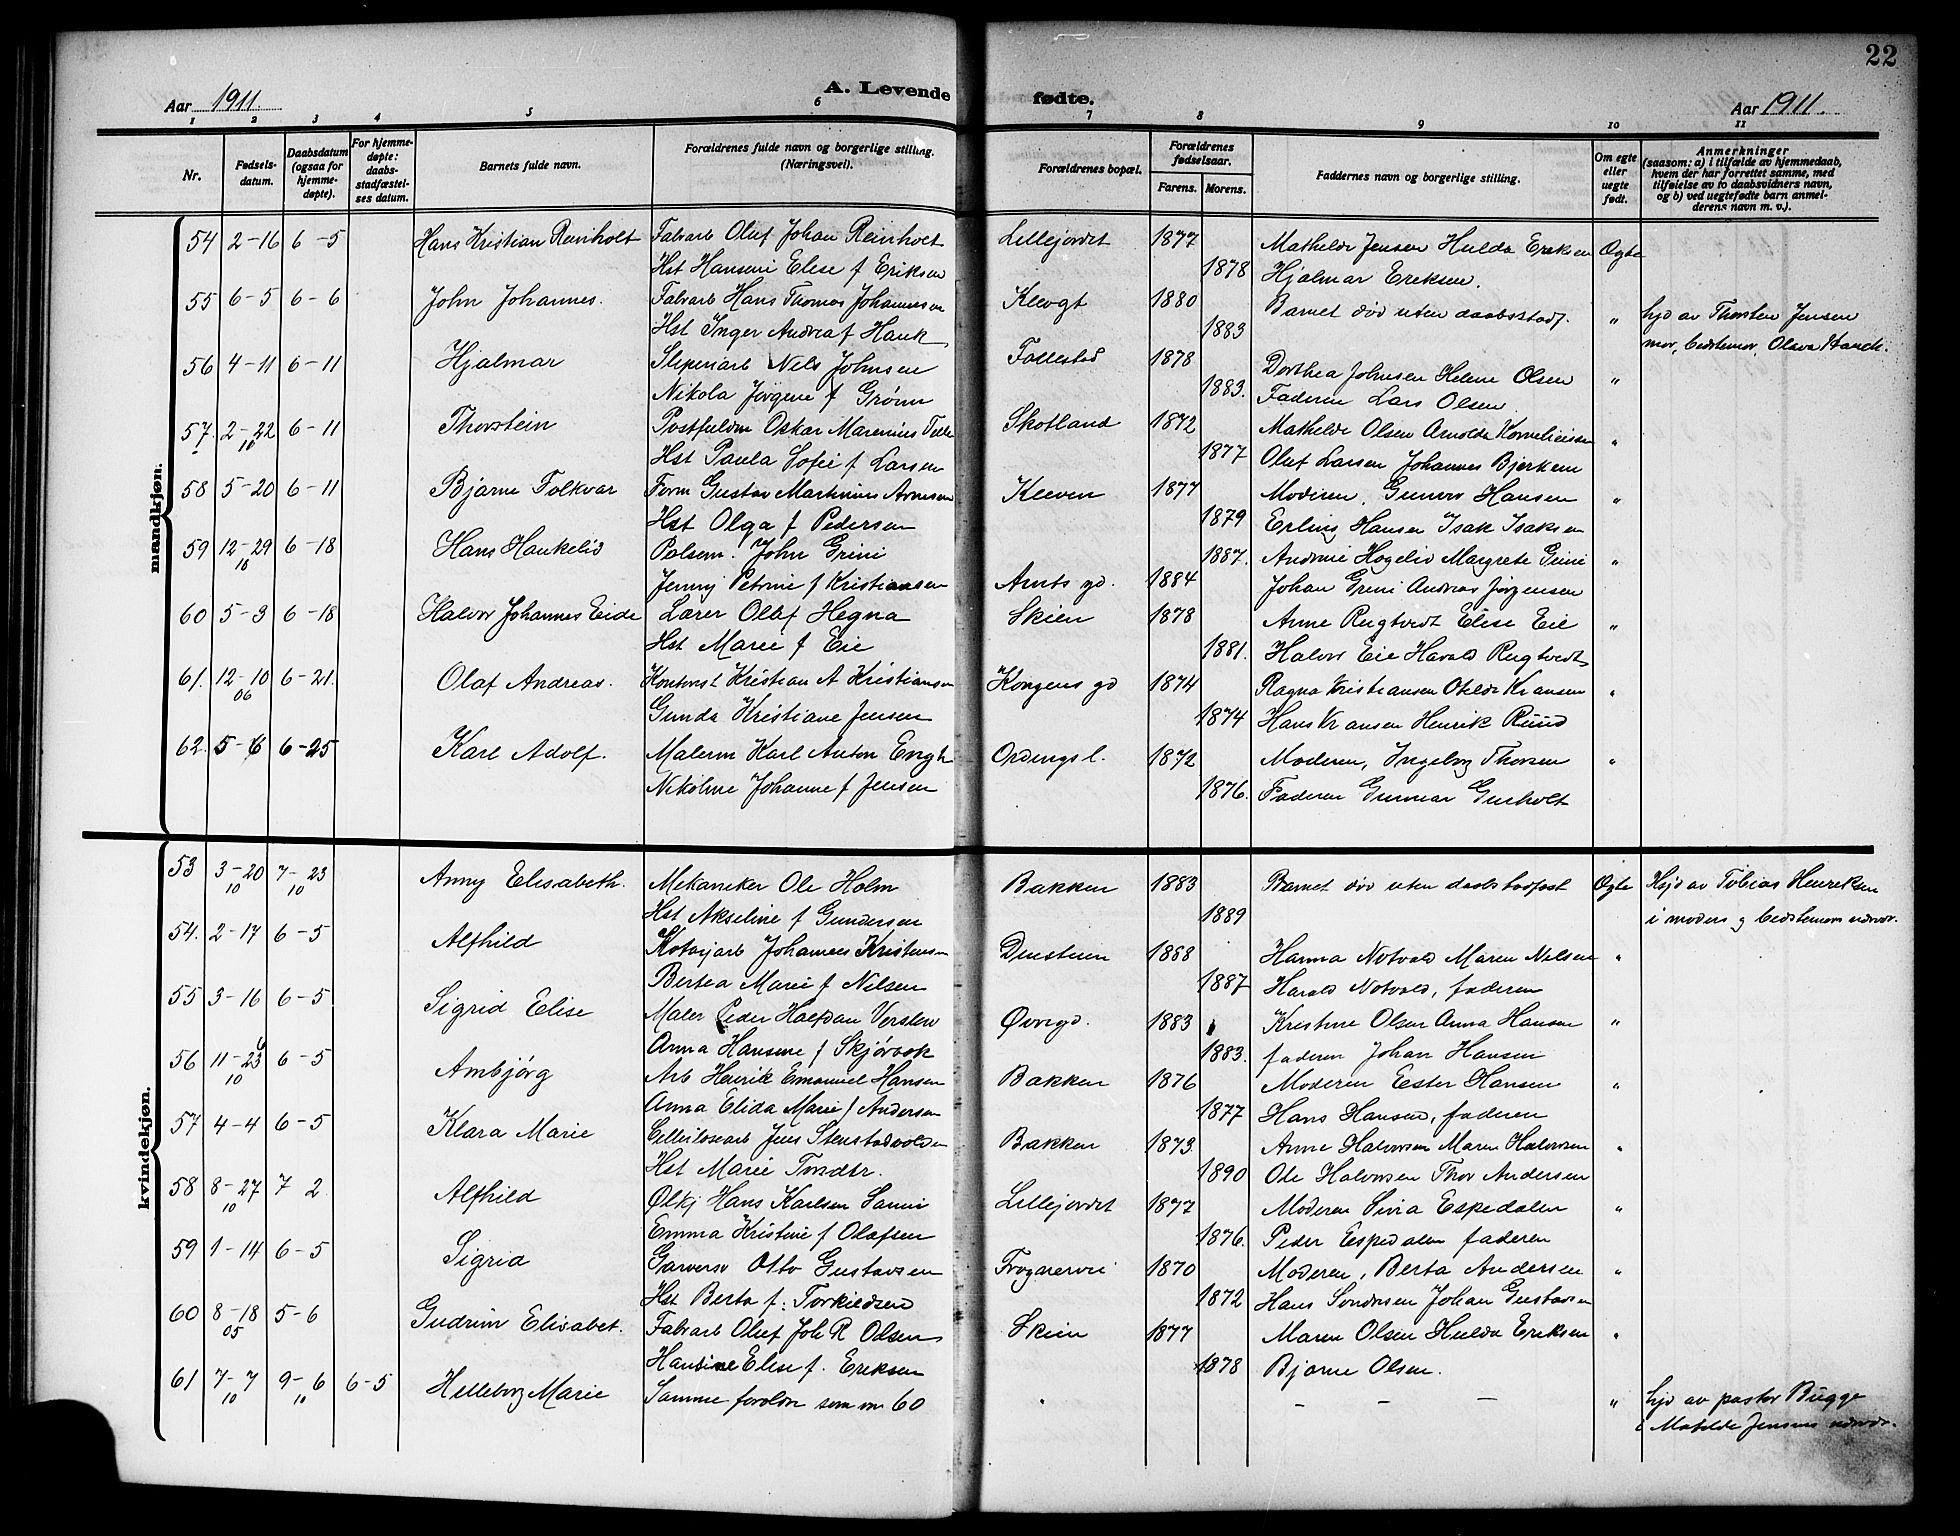 22
Aar 1911. A. Levende fødte. Aar 1911.
1 2 3 4 5 6 7 8 9 10 11
Nr. Fødsels-datum. Daabsdatum (ogsaa for hjemme-døpte). For hjemme-døpte: daabs-stadfæstel-ses datum. Barnets fulde navn. Forældrenes fulde navn og borgerlige stilling. (Næringsvei). Forældrenes bopæl. Forældrenes fødselsaar. Farens. Morens. Faddernes navn og borgerlige stilling. Om egte eller uegte født. Anmerkninger (saasom: a) i tilfælde av hjemmedaab, hvem der har forrettet samme, med tilføielse av to daabsvidners navn, og b) ved uegtefødte barn anmel-derens navn m. v.).
mandkjøn.
54 2-16 6-5 Hans Kristian Reinholt Fabrarb Oluf Johan Reinholt Lillejordet 1877 Mathilde Jensen Hulda Eriksen Ogte
Hst Hansine Elise f Eriksen 1878 Hjalmar Eriksen.
55 6-5 6-6 John Johannes. Fabrarb Hans Thomas Johannesen Klevgt 1880 Barnet død uten daabsstadf. " hjd av Thorsten Jensen
Hst Inger Andrea f Hauk 1883 mor, bedstemor, Olava Hauck.
56 4-11 6-11 Hjalmar Sliperiarb Nils Johnsen Follestad 1878 Dorthea Johnsen Helene Olsen "
Nikola Jørgine f Grønn 1883. Faderen Lars Olsen
57. 2-22 10 6-11 Thorstein Postfuldm Oskar Marenius Skotland 1872 Mathilde Olsen Arnolda Korneliussen "
Hst Paula Sofie f Larsen 1877 Oluf Larsen Johannes Bjerkem
58 5-20 6-11 Bjarne Folkvar Form Gustav Martinius Arnesen Kleven 1877 Moderen, Gunvor Hansen "
Hst Olga f Pedersen 1879 Erling Hansen Isak Isaksen
59 12-29 10 6-18 Hans Haukelid Polsem. John Grini 1887. Andrine Hogelid Margrete Grini "
Jenny Petrine f Kristiansen Amts gd. 1884 Johan Grini Andreas Jørgensen
60 5-3 6-18 Halvor Johannes Eide Lærer Ollaf Hegna Skien 1878 Anne Rugtvedt Elise Eie "
Hst Marie f Eie 1881. Halvor Eie Harald Rugtvedt
61. 12-10 06 6-21. Olaf Andreas. Kontorist Kristian A Kristiansen Kongens gd 1874 Ragna Kristiansen Otilde Kransen "
Gunda Kristiane Jensen 1874 Hans Kransen Henrik Ruud
62. 5-6 6-25 Karl Adolf. Malerm Karl Anton Engh Ordengsl. 1872 Moderen, Ingeborg Thorsen "
Nikoline Johanne f Jensen 1876. Faderen Gunnar Gusholt
kvindekjøn.
53 3-20 10 7-23 10 Anny Elisabeth. Mekaniker Ole Holm Bakken 1883 Barnet død uten daabstadfæst Ogte Hjd av Tobias Henriksen
Hst Akseline f Gundersen 1889 i moders og bedstemors nærvær.
54. 2-17 6-5 Alfhild Johannes Kristensen 1888 Hanna Notvald Maren Nilsen "
Bertea Marie f Nilsen 1887 Harald Notvald, faderen
55 3-16 6-5 Sigrid Elise Maler Peder Halfdan Verslev Øvregd. 1883 Kristine Olsen Anna Hansen "
Anna Hansine f Skjørbæk 1883. faderen Johan Hansen
56 11-23 10 6-5 Ambjørg Arb Henrik Emanuel Hansen Bakken 1876 Moderen Ester Hansen "
Anna Elida Marie f Andersen 1877 Hans Hansen, faderen
57 4-4 6-5 Klara Marie Cellulosearb Jens Stenstadvolden Bakken 1873. Anne Halvorsen Maren Halvorsen "
Hst Marie 1890 Ole Halvorsen Thor Andersen
58 8-27 10 7 2 Alfhild Ølkj Hans Karlsen Lillejordet 1877 Moderen Sivia Espedalen "
Emma Kristine f Olafsen 1876. Peder Espedalen faderen
59 1-14 6-5 Sigrid Garversv Otto Gustavsen Frognervei 1870 Moderen, Berta Andersen "
Hst Berta f. Torkildsen 1872 Hans Sondresen Johan Gustavsen
60 8-18 05 5-6 Gudrun Elisabet. Fabrarb Oluf Joh R Olsen Skien 1877 Maren Olsen Hulda Eriksen "
Hansine Elise f. Eriksen 1878 Bjarne Olsen.
61 7-7 10 9-6 10 6-5 Helleborg Marie Samme foreldre som nr 60 " - - - " hjd av pastor Bugge
i Matilde Jensens nærvær.